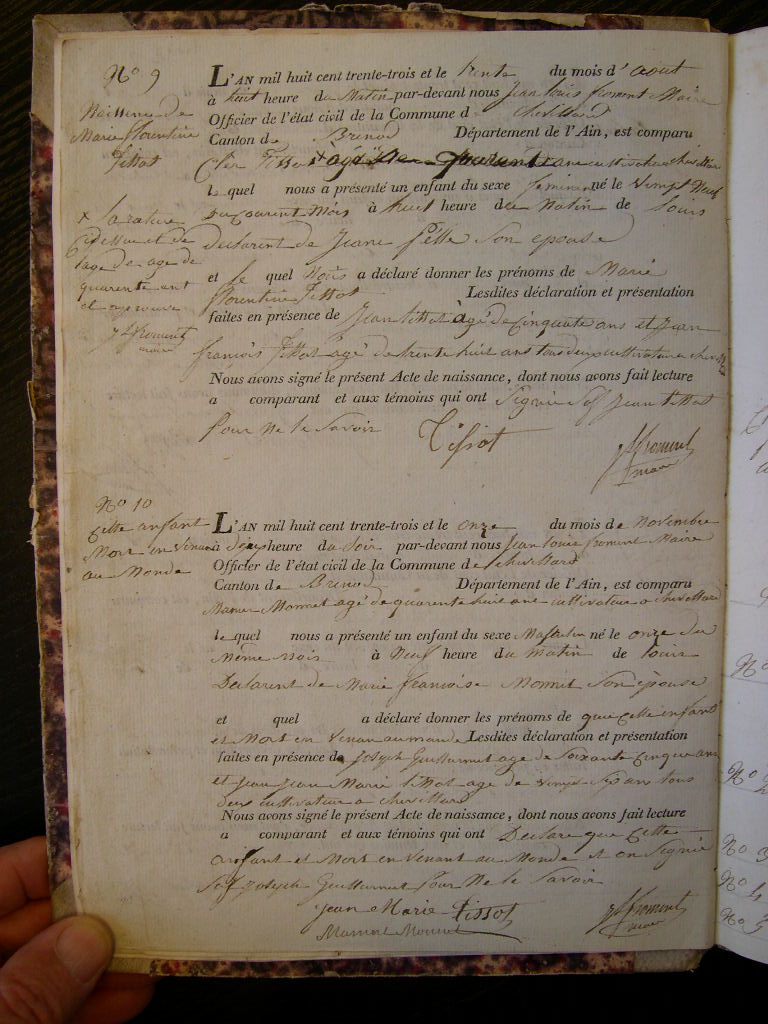 No 9
Naissence de
Marie florentine
Tissot
x la rature
cidessus et de
l'age de age de
quarente ant
et approuvé
jl froment
maire
L'AN mil huit cent trente-trois et le trente du mois d'aout
à huit heure du Matin par-devant nous jean louis froment Maire
Officier de l'état civil de la Commune d chevillard
Canton de Brenod Département de l'Ain, est comparu
Tissot x agé de quarent ans cultivateur a chevillard
le quel nous a présenté un enfant du sexe feminin né le vingt neuf
du courent Mois à huit heure du Matin de louis
declarent de jeane pette son epouse
et le quel Nous a déclaré donner les prénoms de Marie
florentine Tissot Lesdites déclaration et présentation
faites en présence de jean tissot agé de cinquate ans et jean
francois tissot agé de trente huit ans tous deux cultivateur a chevillard
Nous avons signé le présent Acte de naissance, dont nous avons fait lecture
a comparant et aux témoins qui ont signié sof jean tissot
pour Ne le savoir Tissot
jl froment
maire
No 10
cette anfant
Mort en Venan
au Monde
L'AN mil huit cent trente-trois et le onze du mois de novembre
à heure du soir par-devant nous jean louis froment Maire
Officier de l'état civil de la Commune de chevillard
Canton de Brenod Département de l'Ain, est comparu
Mamer Monnet agé de quarente huit ans cultivateur a chevillard
le quel nous a présenté un enfant du sexe Masculin né le onze du
Même mois à Neuf heure du matin de louis
Declarent de Marie francoise Monnet son epouse
et quel a déclaré donner les prénoms de que cette enfant
et Mort en venan au monde Lesdites déclaration et présentation
faites en présence de joseph Guillermet age de soixante cinque ans
et jean jean Marie tissot age de vingt six ans tous
deux cultivateur a chevillard
Nous avons signé le présent Acte de naissance, dont nous avons fait lecture
a comparant et aux témoins qui ont Declaré que cette
anfant et Mort en venant au Monde et on signié
sof joseph Guillermet pour Ne le savoir
jean Marie Tissot
jl froment
maire
Mamert Monnet
No
No
No 3
No 4
No 5